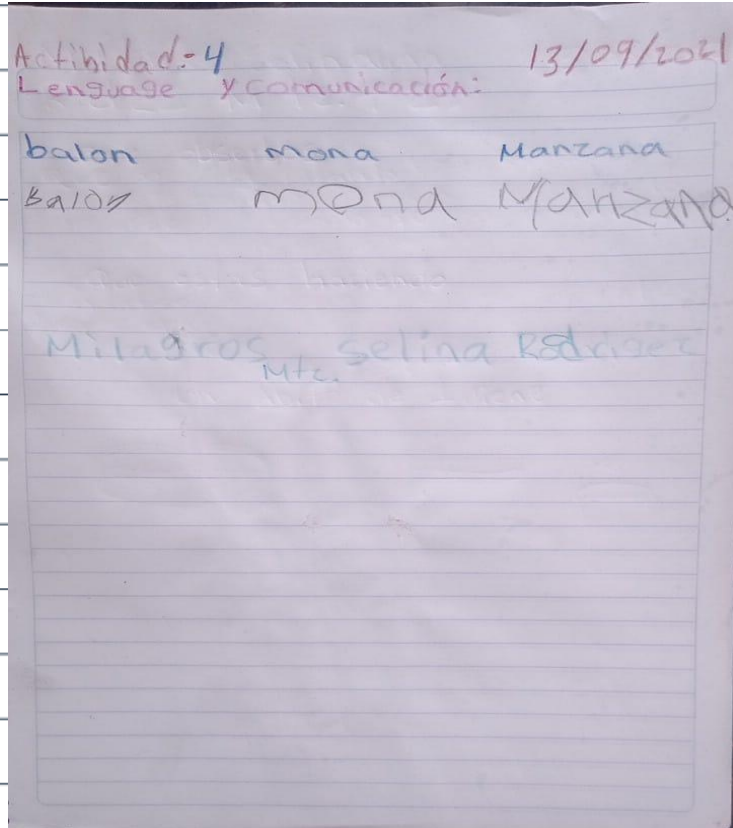 Actibidad:-4 13/09/2021
Lenguage y comunicación:
balon mona Manzana
Balon mona Manzana
Milagros selina Rodriguez